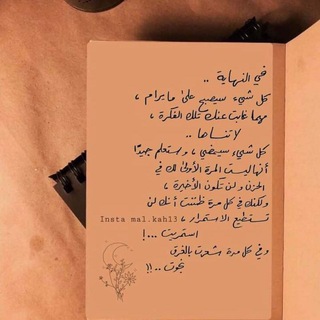 في النهاية ..
كل شيء سيصبح على ما يرام ،
مهما غابت عنك تلك الفكرة ،
لا تنساها ..
كل شيء سيمضي ، وستعلم جيدًا
أنها ليست المرة الأولى لك في
الحزن ولن تكون الأخيرة ،
ولكنك في كل مرة ظننت أنك لن
تستطيع الاستمرار ،
Insta mal.kah13
استمريت ...!
وفي كل مرة شعرت بالغرق
نجوت ..!!